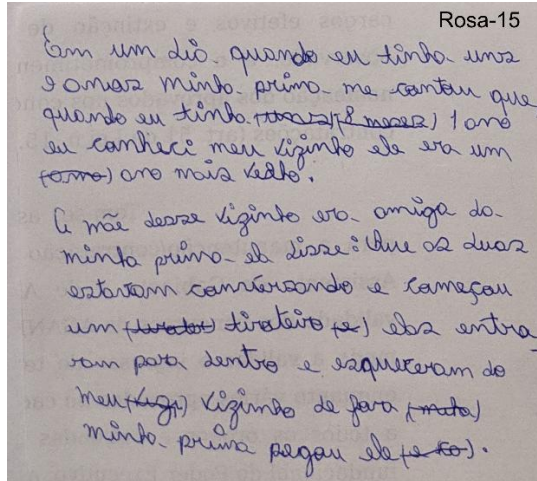 Rosa-15
Em um dia quando eu tinha uns
9 anos minha prima me contou que
quando eu tinha 1 ano
eu conheci meu vizinho ele era um
(amo) ano mais velho.
A mãe desse vizinho era amiga da
minha prima ela disse: Que as duas
estavam conversando e começou
um tiroteio (e) elas entra
ram para dentro e esqueceram do
meu (vizi) vizinho de fora
minha prima pegou ele.